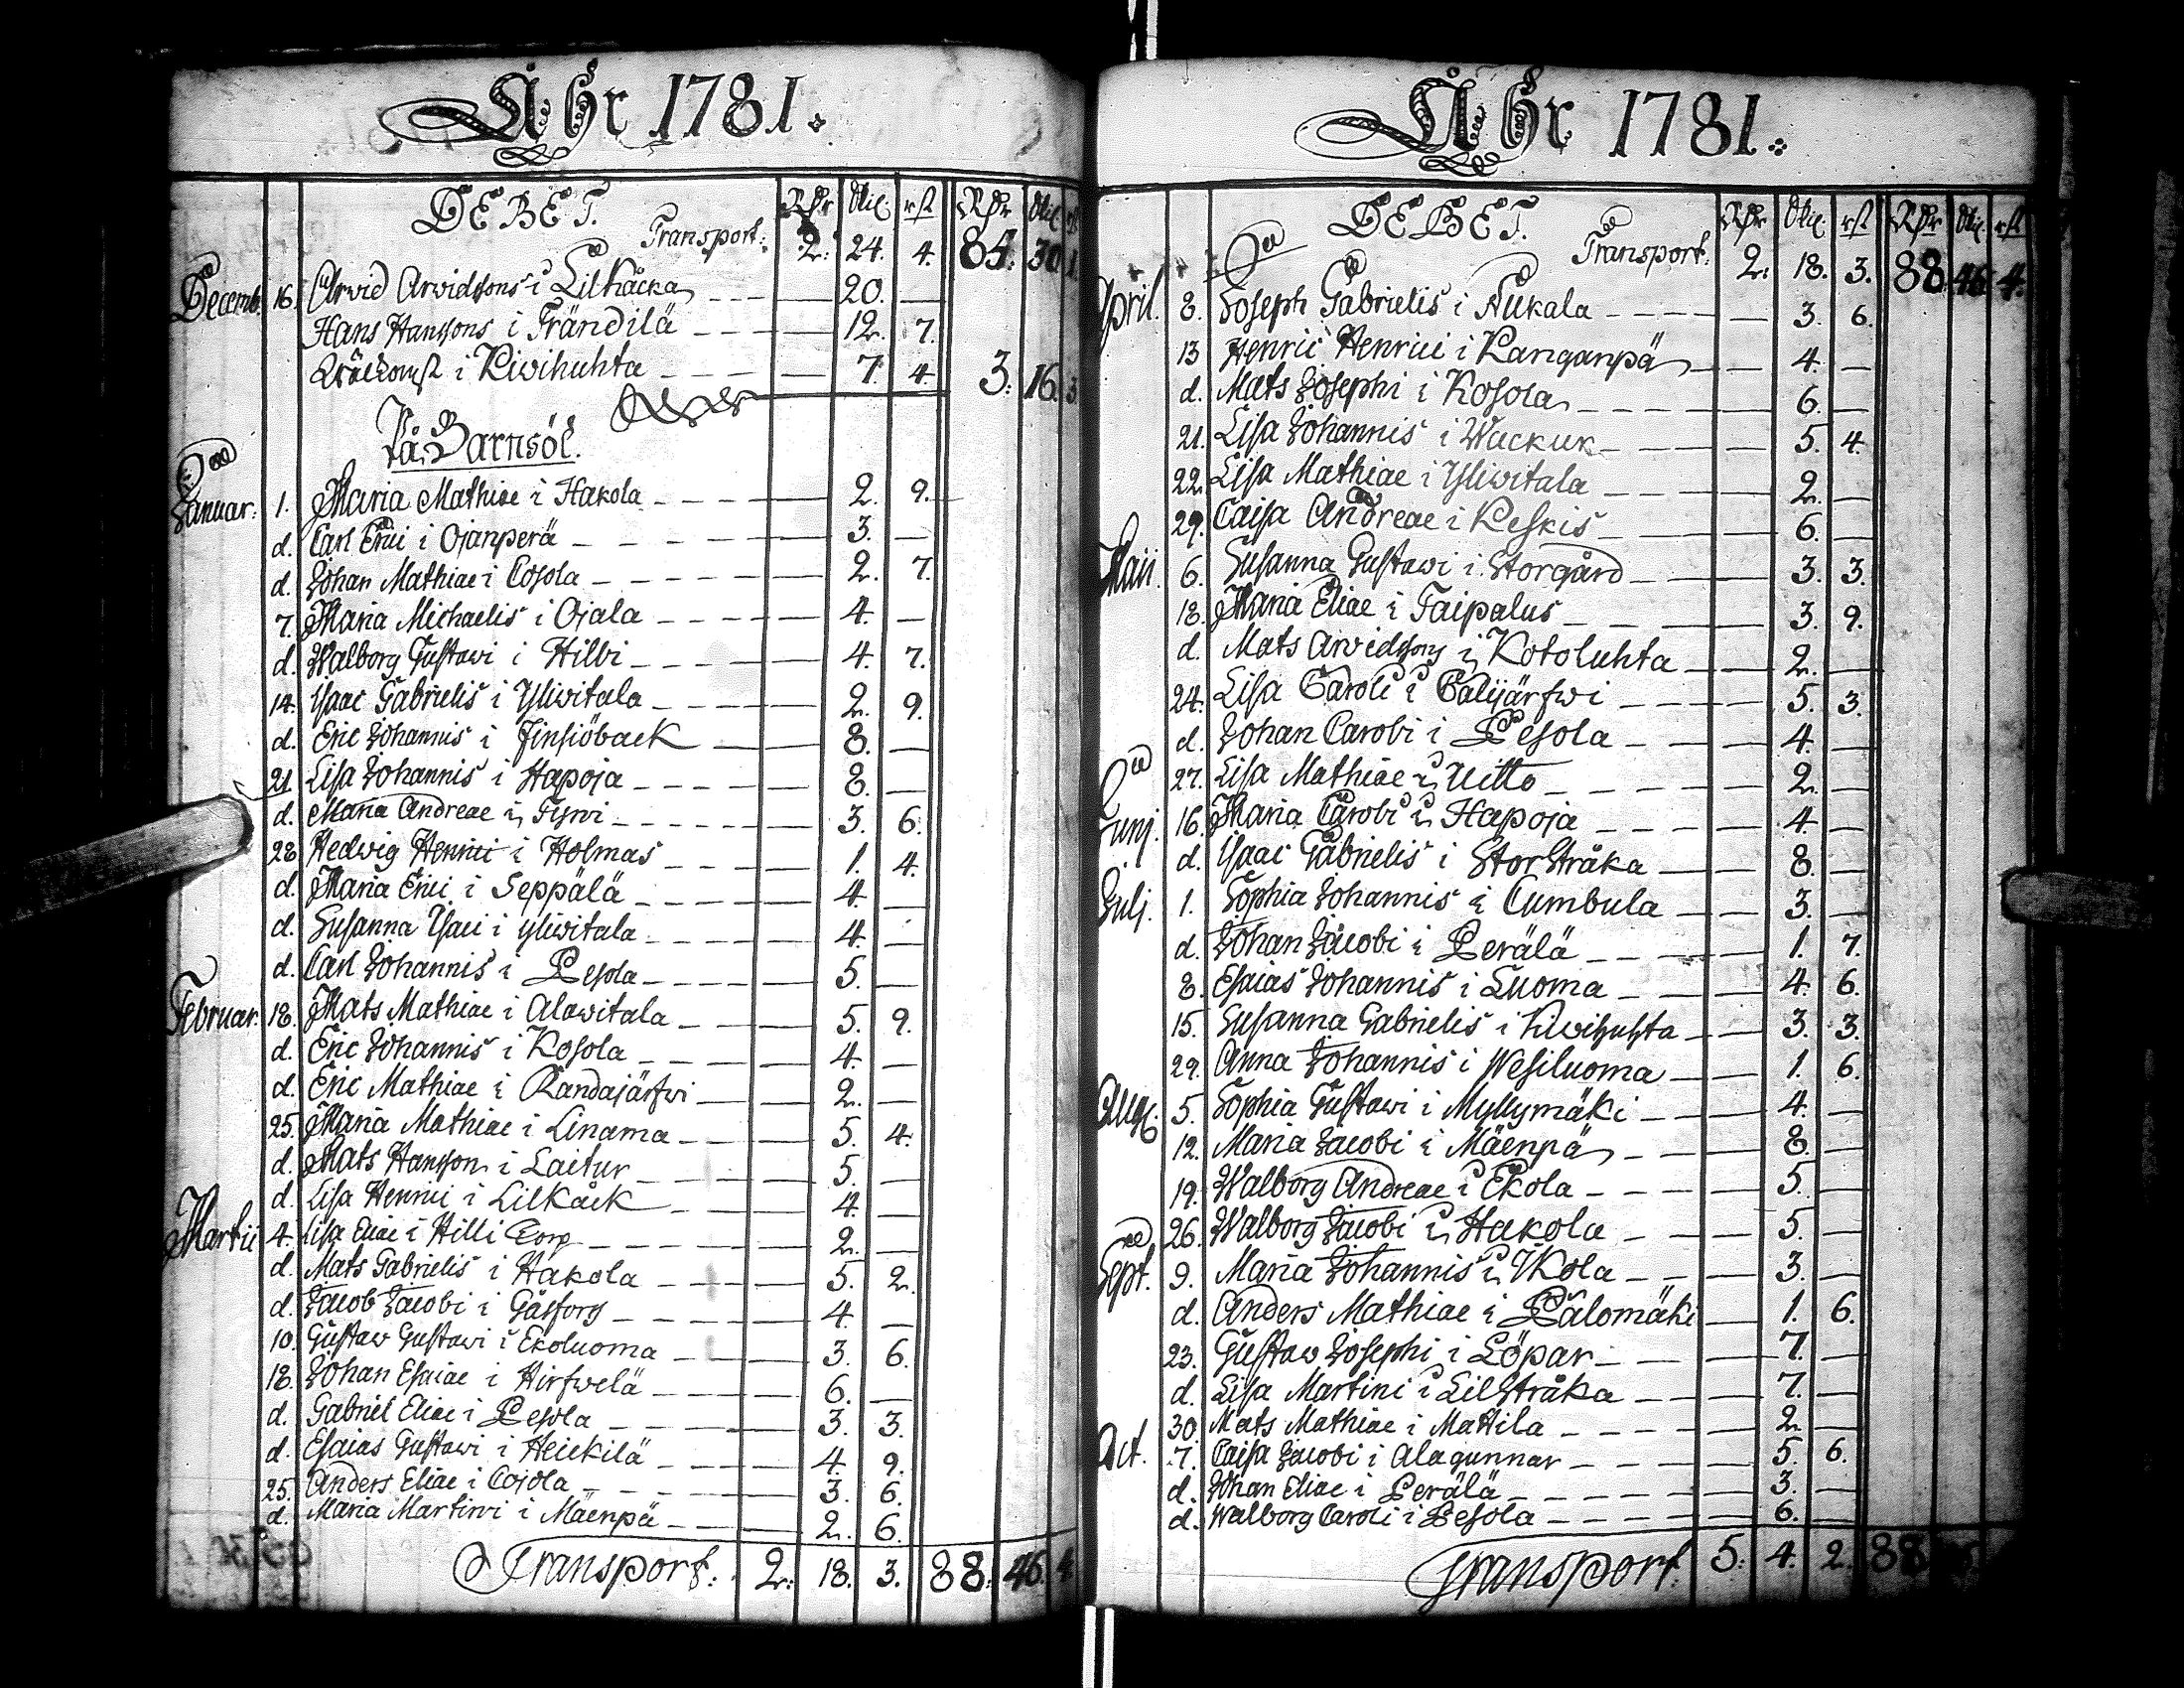 Åhr 1781.
DEBET. Rdr skil. rst Rdr skil. rst
Transport: 2: 24. 4. 85: 30 1
Decemb. 16. Arvid Arvidssons i Lilkåcka 20. —
Hans Hanssons i Frändilä 12. 7.
i Kivihuhta 7. 4. 3: 16. 3
På Barnsöl.
Januar: 1. Maria Mathiae i Hakola 2. 9.
d. Carl Erici i Ojanperä 3. —
d. Johan Mathiae i Cosola 2. 7.
7. Maria Michaelis i Ojala 4. —
d. Walborg Gustavi i Hilbi 4. 7.
14. Isaac Gabrielis i Yliwitala 2. 9.
d. Eric Johannis i Finsiöback 8. —
21. Lisa Johannis i Hapoja 8. —
d. Maria Andreae i Tyrvi 3. 6.
28 Hedwig Henrici i Holmas 1. 4.
d. Maria Erici i Seppälä 4. —
d. Susanna Isaci i yliwitala 4. —
d. Carl Johannis i Pesola 5. —
Februar. 18. Mats Mathiae i Alawitala 5. 9.
d. Eric Johannis i Kosola 4. —
d. Eric Mathiae i Randajärfwi 2. —
25. Maria Mathiae i Linama 5. 4.
d. Mats Hansson i Laitur 5. —
d. Lisa Henrici i Lilkåck 4. —
Martii 4. Lisa Eliae i Hilli Torp 2. —
d. Mats Gabrielis i Hakola 5. 2.
d. Jacob Jacobi i Gåsforg 4. —
10. Gustaw Gustavi i Ekoluoma 3. 6.
18. Johan Esaiae i Hirfwelä 6. —
d. Gabriel Eliae i Pesola 3. 3.
d. Esaias Gustavi i Heickilä 4. 9.
25. Anders Eliae i Cojola 3. 6.
d. Maria Martini i Mäenpä 2. 6.
Transport: 2: 18. 3. 88: 46. 4
Åhr 1781.
DEBET. Rdr skil. rst Rdr skil. rst
Transport: 2: 18. 3. 88. 46. 4.
April. 8. Joseph Gabrielis i Nukala 3. 6.
13 Henric Henrici i Kanganpä 4. —
d. Mats Josephi i Kosola 6. —
21. Lisa Johannis i Wackur 5. 4.
22. Lisa Mathiae i Yliwitala 2. —
29. Caisa Andreae i Keskis 6. —
Maii. 6. Susanna Gustavi i Storgård 3. 3.
18. Maria Eliae i Taipalus 3. 9.
d. Mats Arvidssons i Kotoluhta 2. —
24. Lisa Caroli i Calijärfwi 5. 3.
d. Johan Carobi i Pesola 4. —
27. Lisa Mathiae i Uitto 2. —
Junj. 16. Maria Carobi i Hapoja 4. —
d. Isaac Gabrielis i Stor Stråka 8. —
Julj. 1. Sophia Johannis i Cumbula 3. —
d. Johan Jacobi i Perälä 1. 7.
8. Esaias Johannis i Luoma 4. 6.
15. Susanna Gabrielis i Kivihuhta 3. 3.
29. Anna Johannis i Wesiluoma 1. 6.
Aug. 5. Sophia Gustavi i Myllymäki 4. —
12. Maria Jacobi i Mäenpä 8. —
19. Walborg Andreae i Ekola 5. —
26. Walborg Jacobi i Hakola 5. —
Sept. 9. Maria Johannis i Ikola 3. —
d. Anders Mathiae i Pälomäki 1. 6.
23. Gustaw Josephi i Löpar 7. —
d. Lisa Martini i Lil Stråka 7. —
30. Mats Mathiae i Mattila 2 —
Oct. 7. Caisa Jacobi i Alagunnar 5. 6.
d. Johan Eliae i Perälä 3. —
d. Walborg Caroli i Pesola 6. —
Transport: 5: 4. 2. 88